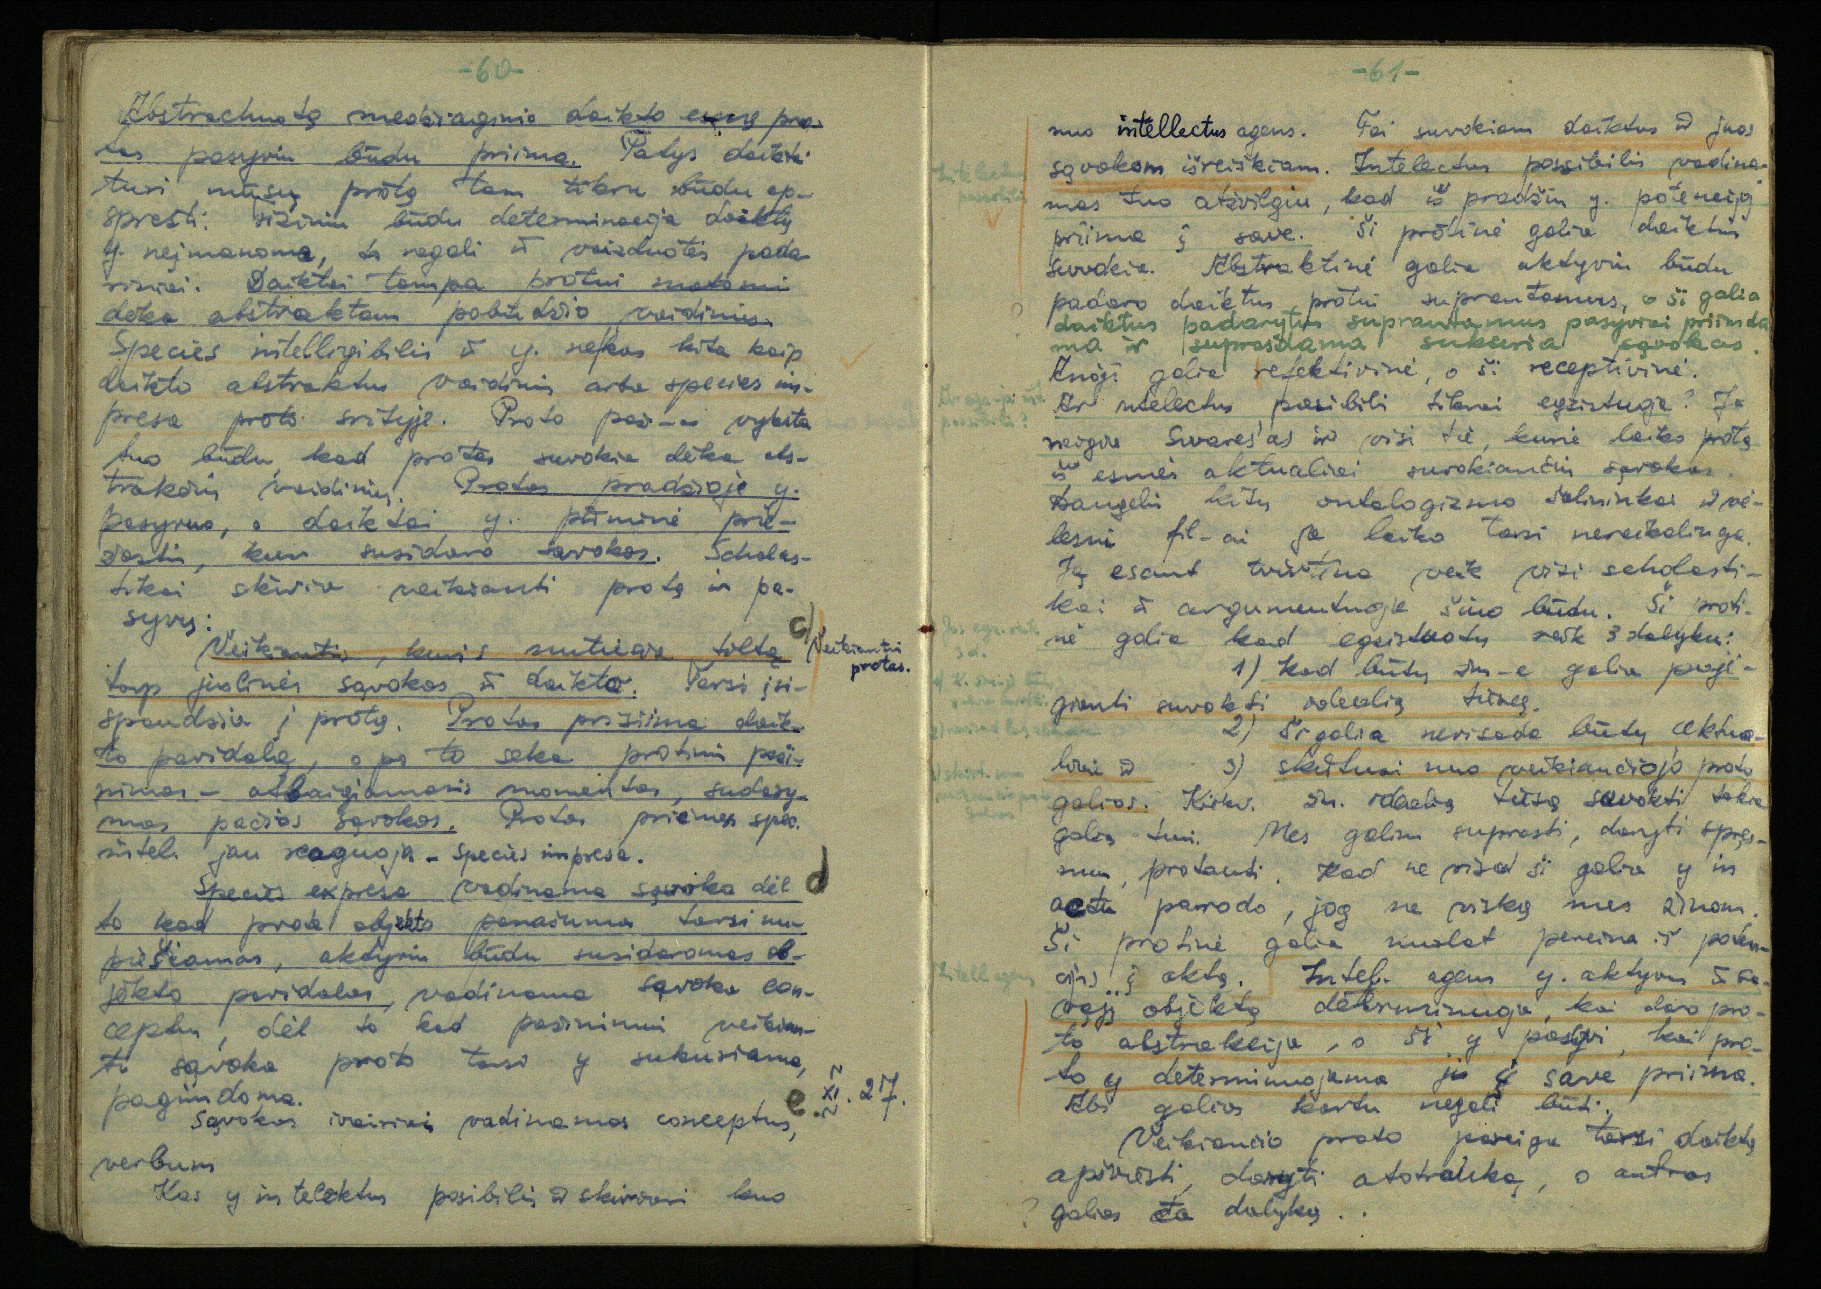 -60-
Abstrachuotą medžiaginio daikto esmę pro-
tas pasyviu būdu priima. Patys daiktai
turi mūsų protą tam tikru būdu ap-
spręsti: fiziniu būdu determinacija daiktų
y. neįmanoma, to negali ir vaizduotės pada-
riniai. Daiktai tampa protui matomi
dėka abstraktaus pobūdžio vaidinių.
Species intelligibilis ir y. nekas kita kaip
daikto abstraktus vaidinis arba species im-
presa proto srityje. Proto paž-as vyksta
tuo būdu, kad protas suvokia dėka abs-
trakčių vaidinių. Protas pradžioje y.
pasyvus, o daiktai y. pirminė prie-
žastis, kuri susidaro sąvokos. Scholas-
tikai skiria veikiantį protą ir pa-
syvų:
c) Veikiantis protas.
Veikiantis, kuris nutiesia tiltą
tarp juslinės sąvokos ir daikto. Tarsi įsi-
spaudžia į protą. Protas prisiima daik-
to pavidalą, o po to seka protinis paži-
nimas - atbaigiamasis momentas, sudary-
mas pačios sąvokos. Protas priėmęs spec.
intel. jau reaguoja - species impresa.
d
Species expresa vadinama sąvoka dėl
to kad prote objekto panašumas tarsi nu-
piešiamas, aktyviu būdu susidaromas ob-
jekto pavidalas, vadinama sąvoka con-
ceptu, dėl to kad pažinimui veikian-
t sąvoka proto tarsi y sukuriama,
pagimdoma.
e. XI. 27.
Sąvokos įvairiai vadinamos conceptus,
verbum
Kas y intelektus posibilis ir skirtumai nuo
-61-
nuo intellectus agens. Tai suvokiam daiktus ir juos
sąvokom išreiškiam. Intelectus possibilis vadina-
mas tuo atžvilgiu, kad iš pradžių y. potencijoj
priima į save. Ši protinė galia daiktus
suvokia. Abstraktinė galia aktyviu būdu
padaro daiktus protui suprantamus, o ši galia
daiktus padarytus suprantamus pasyviai priimda
ma ir suprasdama sukuria sąvokas.
Anoji galia refektivinė, o ši receptivinė.
Ar intelectus posibili tikrai egzistuoja? Jo
neigia Swares'as ir visi tie, kurie laiko protą
iš esmės aktualiai suvokiančiu sąvokas.
Daugelis kitų ontologizmo šalininkai ir vė-
lesni fil-ai ją laiko tarsi nereikalinga.
Ją esant tvirtina veik visi scholasti-
kai ir argumentuoja šiuo būdu. Ši proti-
nė galia kad egzistuotų reik 3 dalykų:
1) kad būtų žm-e galia paji-
gianti suvokti idealią tiesą.
2) Ši galia nevisada būtų aktua-
linė ir 3) skirtusi nuo veikiančiojo proto
galios. Kiekv. žm. idealią tiesą suvokti tokią
galią turi. Mes galim suprasti, daryti spręs-
mus, protauti. Kad ne visad ši galia y in
actu parodo, jog ne viską mes žinom.
Ši protinė galia nuolat pereina iš poten-
cijos į aktą. Intel. agens y. aktyvus ir sa-
vąjį objektą determinuoja, kai daro pro-
to abstrakcija, o ši y pasyvi, kai pro-
to y determinuojama jis į save priima.
Abi galios kartu negali būti.
Veikiančio proto pareiga tarsi daiktą
apšviesti, daryti atotrauką, o antros
? galios ta dalyką..